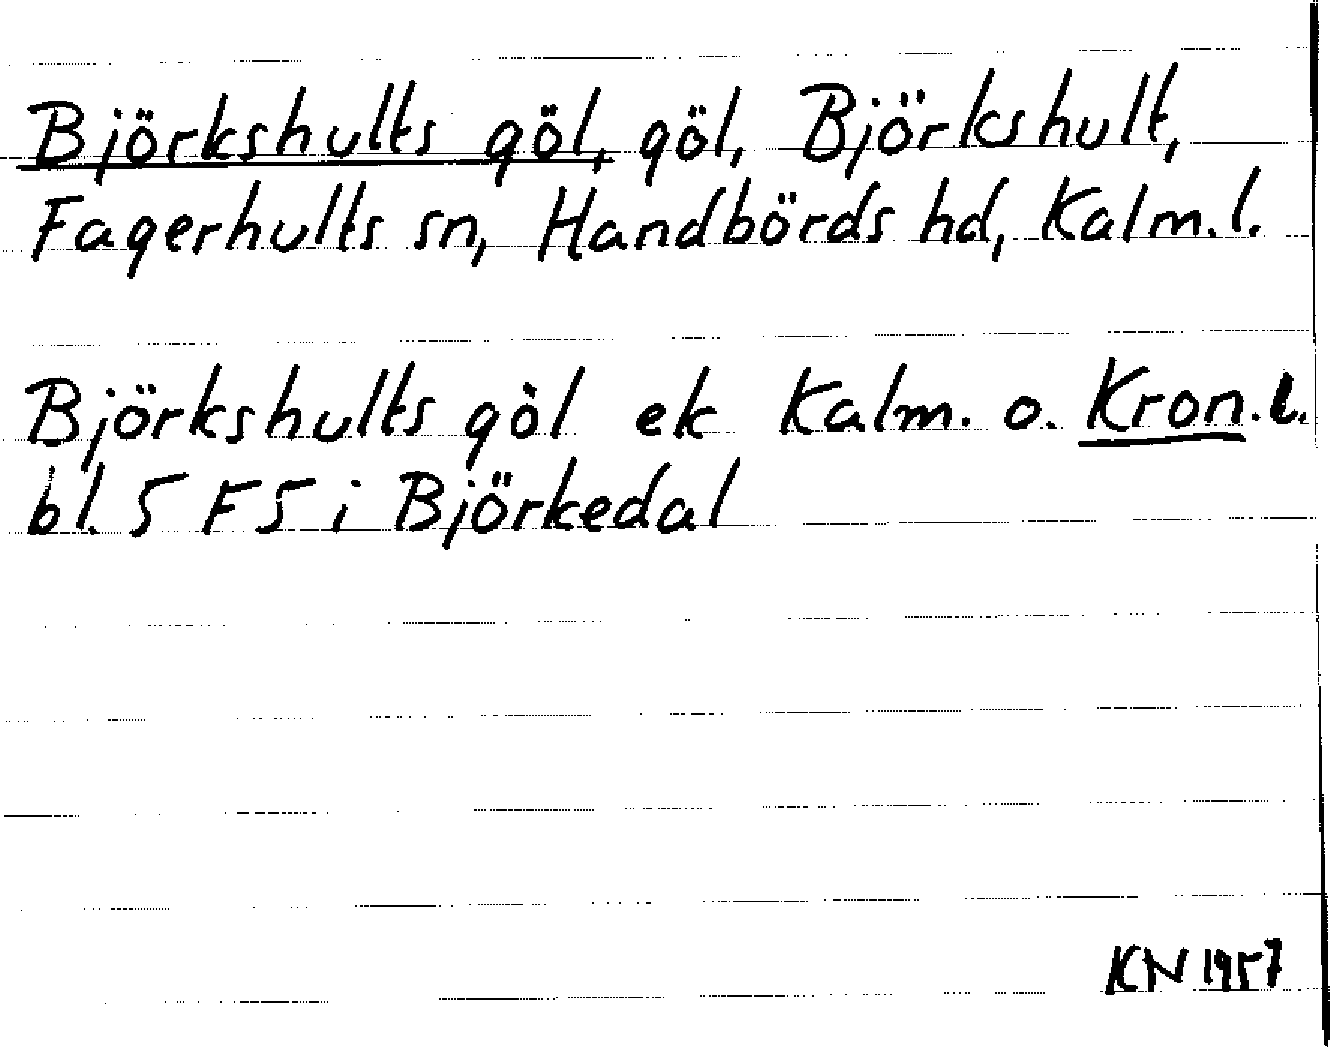 Björkshults göl, göl, Björkshult,
Fagerhults sn, Handbörds hd, Kalm. l.
Björkshults göl ek Kalm. o. Kron. l.
bl. 5 F5 i Björkedal
KN 1957